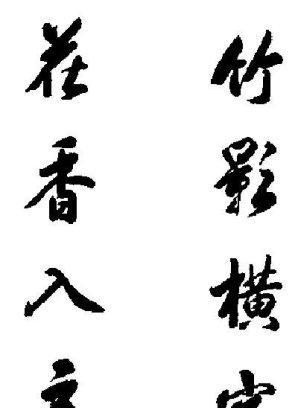 竹影横
花香入